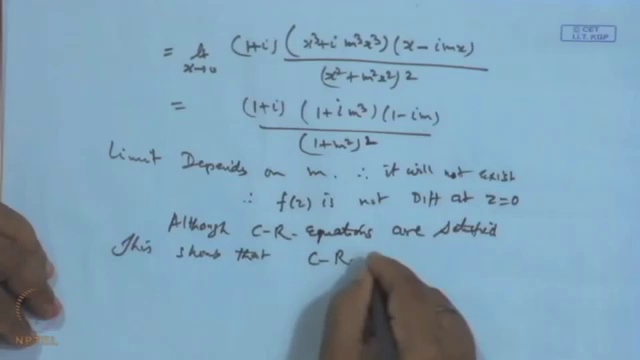 © CET
I.I.T. KGP
= lt x→0 (1+i) (x³+i m³x³) (x-imx) / (x²+m²x²)2
= (1+i) (1+im³) (1-im) / (1+m²)2
Limit Depends on m. ∴ it will not exist
∴ f(z) is not Diff at z=0
Although C-R- Equations are satisfied
This shows that C-R-
NPTEL